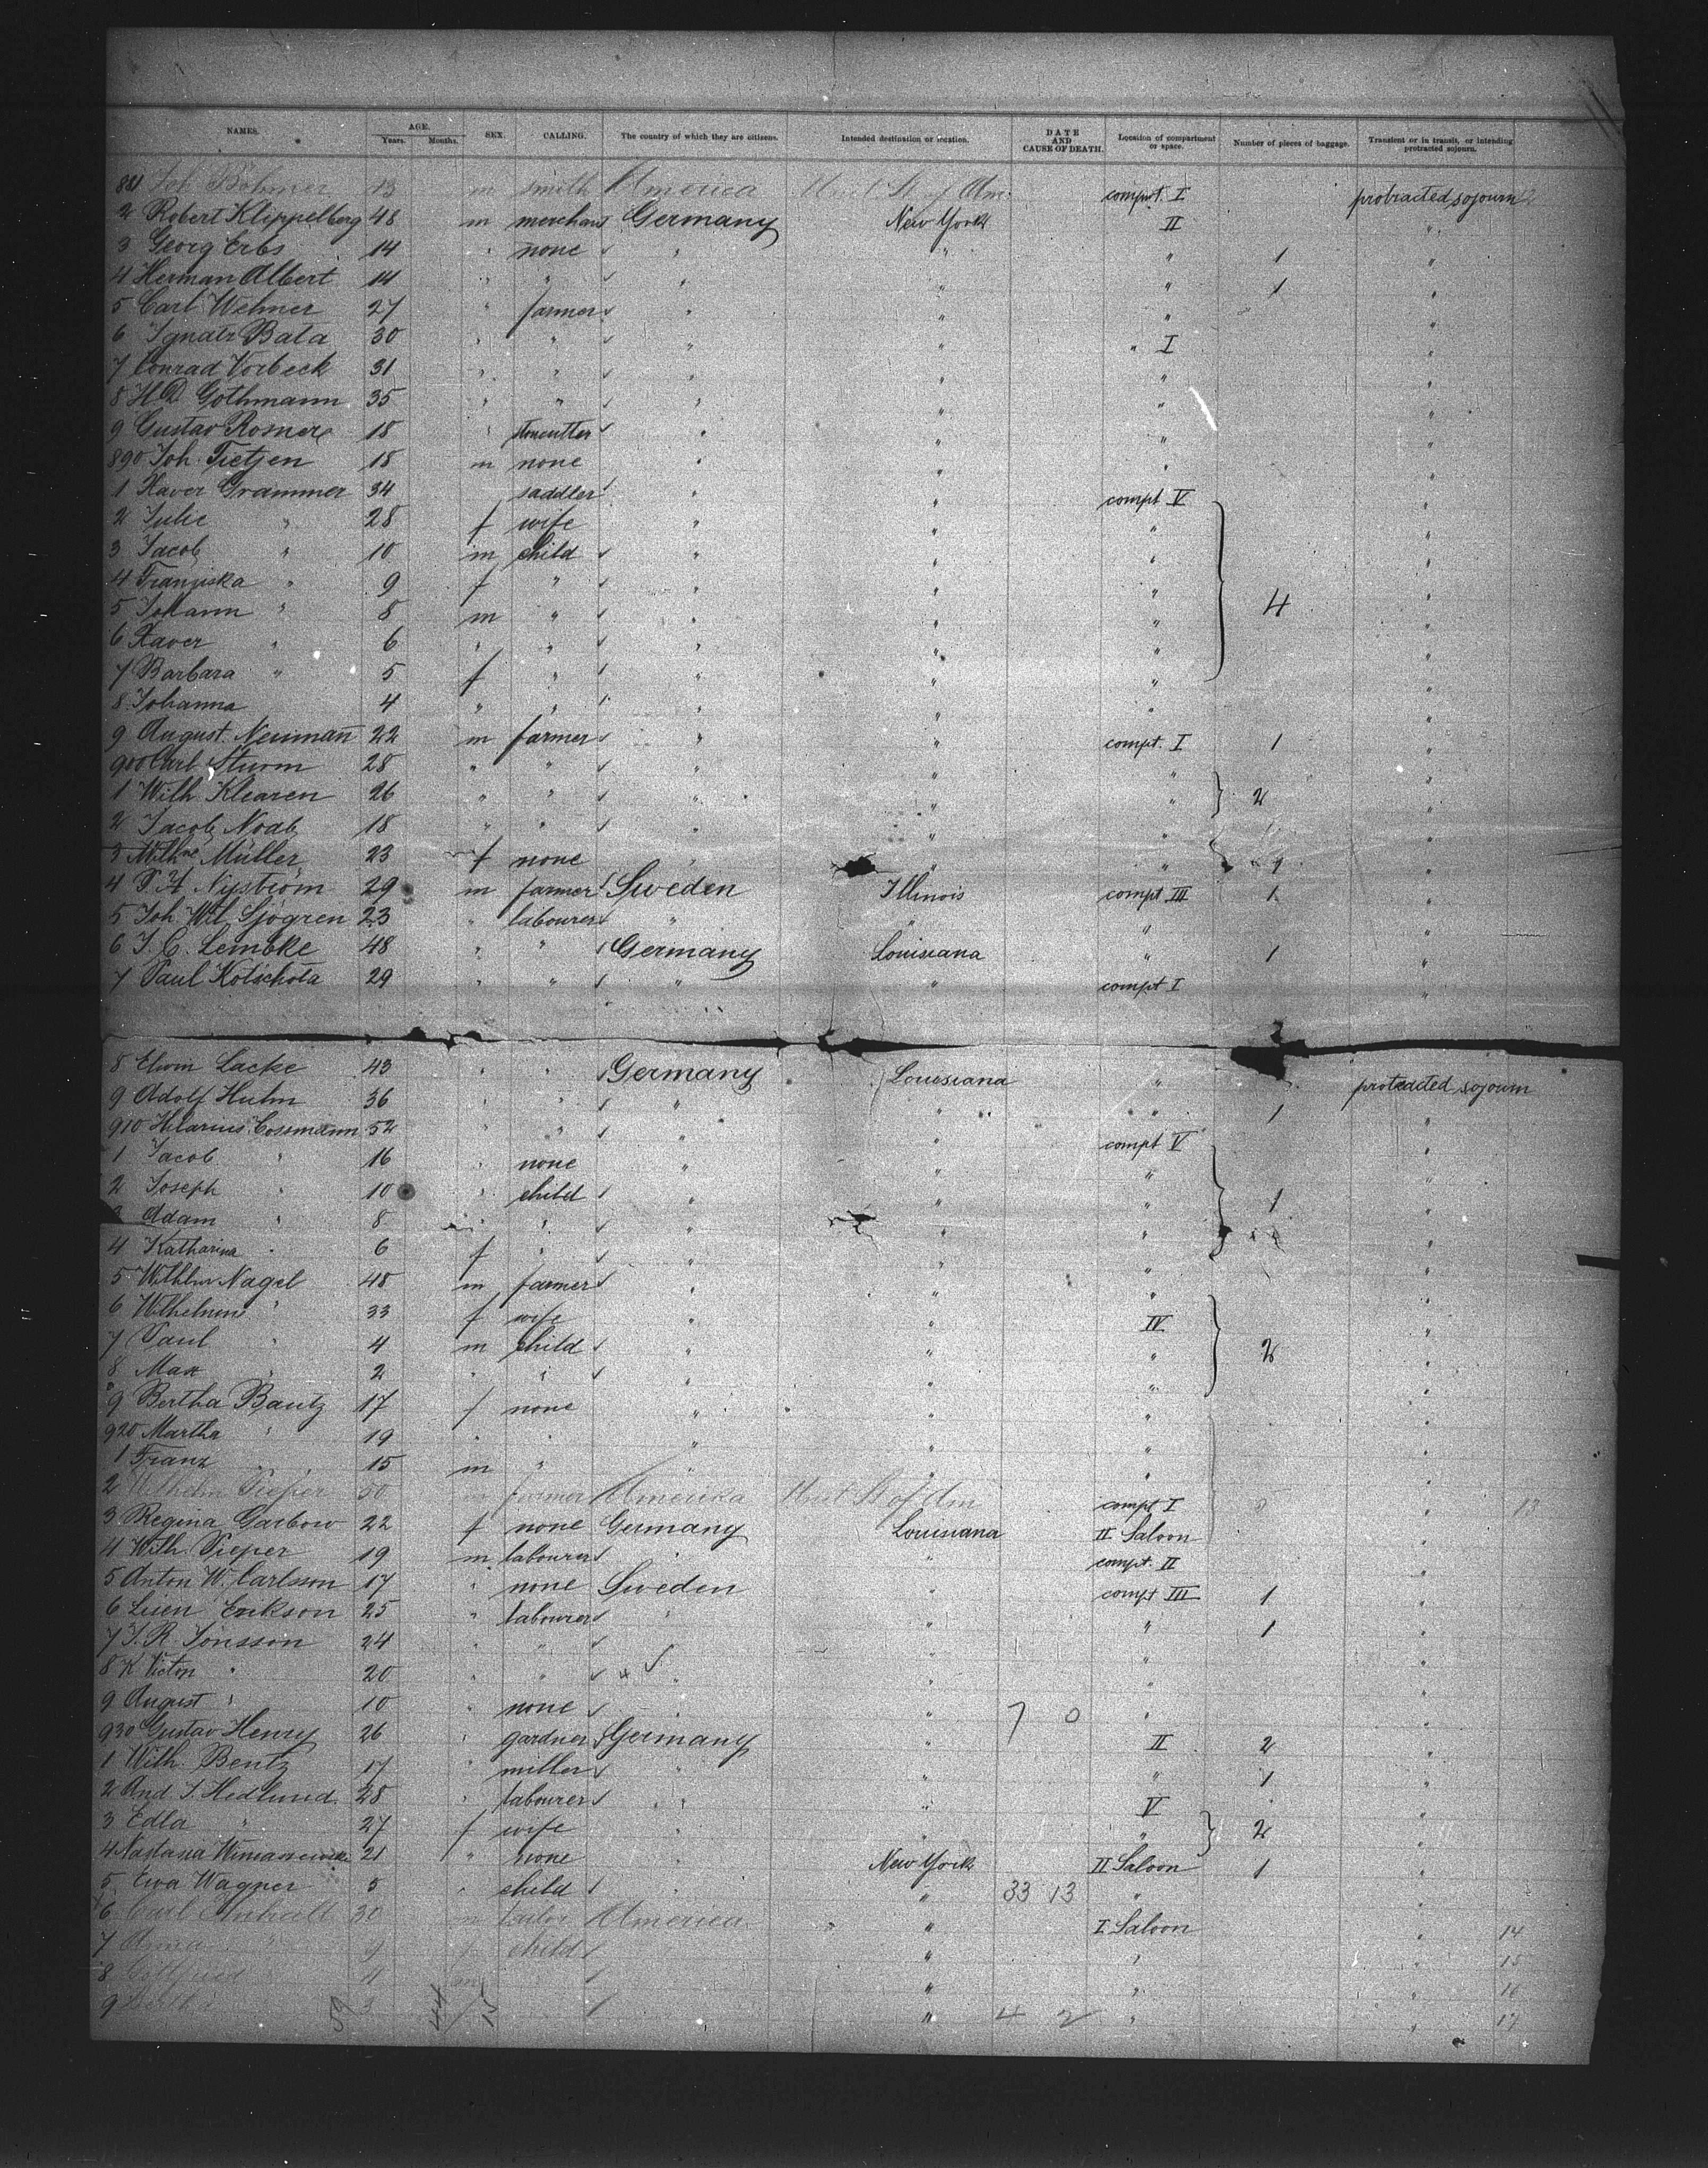 NAMES. AGE. Years. Months. SEX. CALLING. The country of which they are citizens. Intended destination or location. DATE AND CAUSE OF DEATH. Location of compartment or space. Number of pieces of baggage. Transient or in transit, or intending protracted sojourn.
881 Joh. Böhmer m smith America Unit St of Am. compt. I protracted sojourn
2 Robert Klippelberg 48 m merchant Germany New York II "
3 Georg Erbs 14 " none " " " 1 "
4 Herman Albert 14 " " " " " 1 "
5 Carl Wehner 27 " farmer " " " "
6 Ignatz Bata 30 " " " " " I "
7 Conrad Vorbeck 31 " " " " " "
8 H.D. Gothmann 35 " " " " " "
9 Gustav Romere 18 " stonecutter " " " "
890 Joh. Tietjen 18 m none " " " "
1 Xaver Grammer 34 saddler " " compt V "
2 Julie " 28 f wife " " " "
3 Jacob " 10 m child " " " "
4 Franziska " 9 f " " " " "
5 Johann " 8 m " " " " 4 "
6 Xaver " 6 " " " " " "
7 Barbara " 5 f " " " " "
8 Johanna 4 " " " " " "
9 August Neumann 22 m farmer " " compt. I 1 "
900 Carl Sturm 28 " " " " " "
1 Wilh. Klearen 26 " " " " " 2 "
2 Jacob Noab 18 " " " " " "
3 Milhne Müller 23 f none " " " 1 "
4 P.A. Nyström 29 m farmer Sweden Illinois compt III 1 "
5 Joh. Wil. Sjögren 23 " labourer " " " "
6 J.C. Lembke 48 " " Germany Louisiana " 1 "
7 Paul Kotschota 29 " " " " compt I "
8 Elwin Lacke 43 " " Germany Louisiana " protracted sojourn
9 Adolf Huhn 36 " " " " " 1 "
910 Hilarius Cossmann 52 " " " " compt V "
1 Jacob " 16 " none " " " "
2 Joseph " 10 " child " " " 1 "
3 Adam " 8 " " " " " "
4 Katharina " 6 f " " " " "
5 Wilhlm Nagel 48 m farmer " " " "
6 Wilhelmine " 33 f wife " " IV "
7 Paul " 4 m child " " " 2 "
8 Max " 2 " " " " " "
9 Bertha Bautz 17 f none " " " "
920 Martha " 19 " " " " " "
1 Franz " 15 m " " " " "
2 Wilhelm Pieper 50 m farmer Amerika Unit St of Am compt I 13
3 Regina Garbow 22 f none Germany Louisiana II Saloon "
4 Wilh. Pieper 19 m labourer " " compt. II "
5 Anton W. Carlsson 17 " none Sweden " compt III 1 "
6 Leien Erikson 25 " labourer " " " 1 "
7 J.R. Jonsson 24 " " " " "
8 K Victon " 20 " " " " " "
9 August " 10 " none " 7 0 " "
930 Gustav Henry 26 " gardner Germany " II 2 "
1 Wilh. Bentz 17 " miller " " " 1 "
2 And. J. Hedlund 28 " labourer " " V "
3 Edla " 27 f wife " " " 2 "
4 Nastasia 21 " none " New York II Saloon 1 "
5 Ewa Wagner 5 " child " " 33 13 " "
6 Carl 30 m tailor America " I Saloon " 14
7 Anna " 9 f child " " " 15
8 Gottfried 11 m " " " 16
9 3 " 4 2 " " 17
59 44 / 15